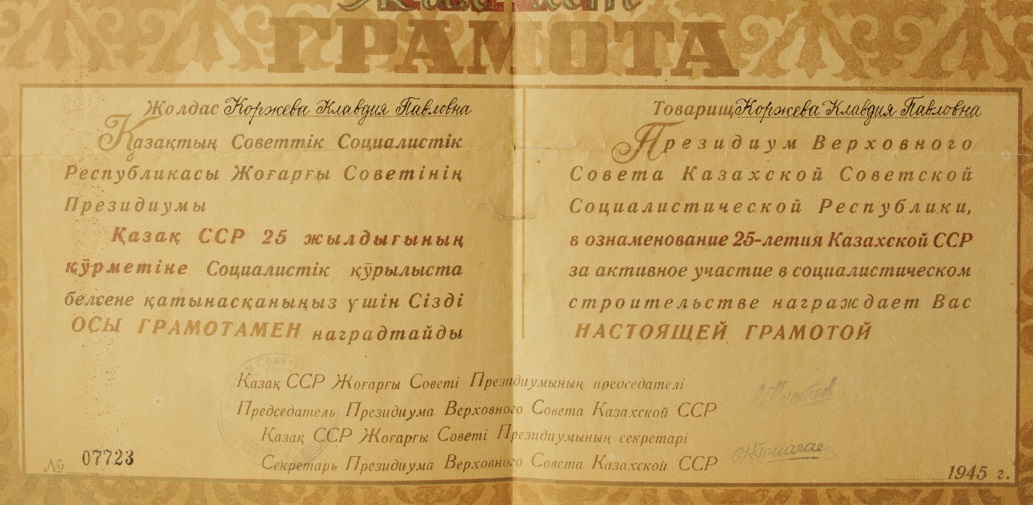 ГРАМОТА
Жолдас Коржева Клавдия Павловна
Қазақтың Советтік Социалистік
Республикасы Жоғарғы Советінің
Президиумы
Қазақ ССР 25 жылдығының
құрметіне Социалистік құрылыста
белсене қатынасқаныңыз үшін Сізді
ОСЫ ГРАМОТАМЕН наградтайды
Товарищ Коржева Клавдия Павловна
Президиум Верховного
Совета Казахской Советской
Социалистической Республики,
в ознаменование 25-летия Казахской ССР
за активное участие в социалистическом
строительстве награждает Вас
НАСТОЯЩЕЙ ГРАМОТОЙ
Қазақ ССР Жоғарғы Советі Президиумының председателі
Председатель Президиума Верховного Совета Казахской ССР
Қазақ ССР Жоғарғы Советі Президиумының секретарі
Секретарь Президиума Верховного Совета Казахской ССР
№ 07723
1945 г.